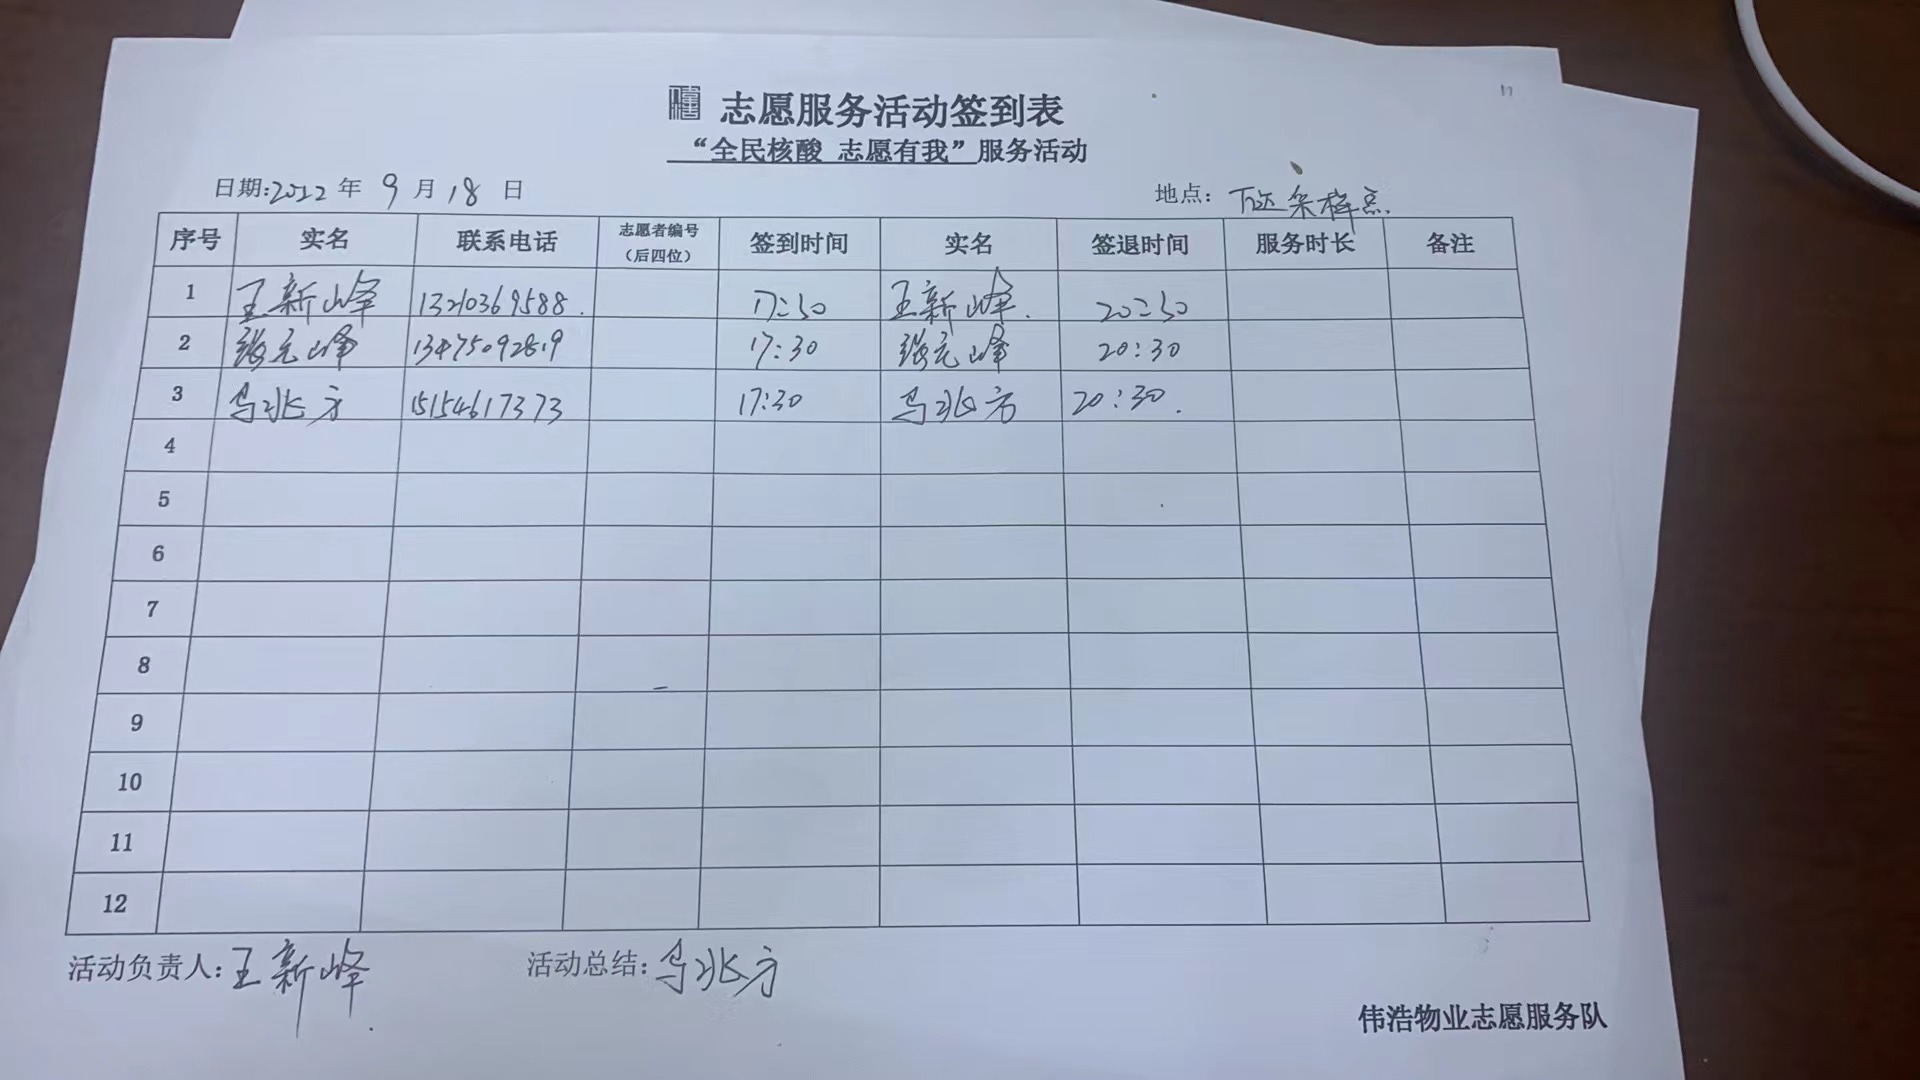 志愿服务活动签到表
“全民核酸 志愿有我”服务活动
日期:2022年 9月 18日 地点：万达采样点.
序号 实名 联系电话 志愿者编号（后四位） 签到时间 实名 签退时间 服务时长 备注
1 王新峰 13210369588. 17:30 王新峰. 20:30
2 张元峰 13475092819 17:30 张元峰 20:30
3 马兆方 15154617373 17:30 马兆方 20:30.
4
5
6
7
8
9
10
11
12
活动负责人:王新峰. 活动总结:马兆方
伟浩物业志愿服务队